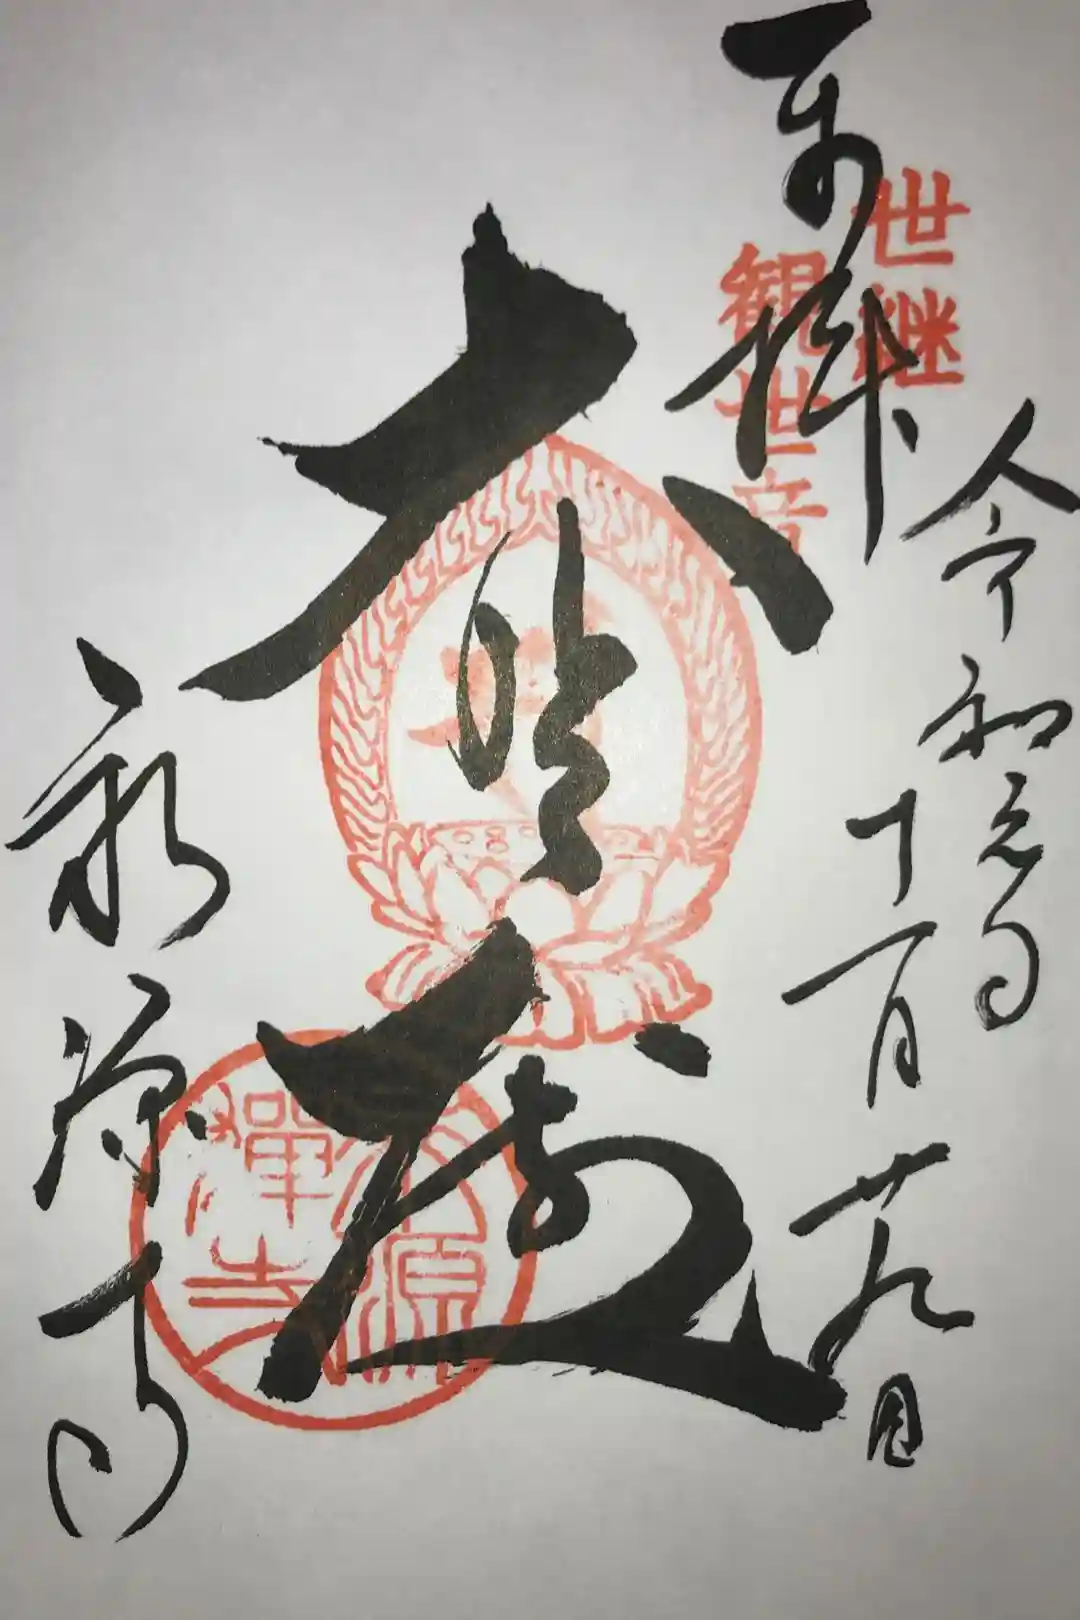 世継
観世音
奉拝
令和元年
十一月廿九日
大悲殿
永源寺
永源
禅寺